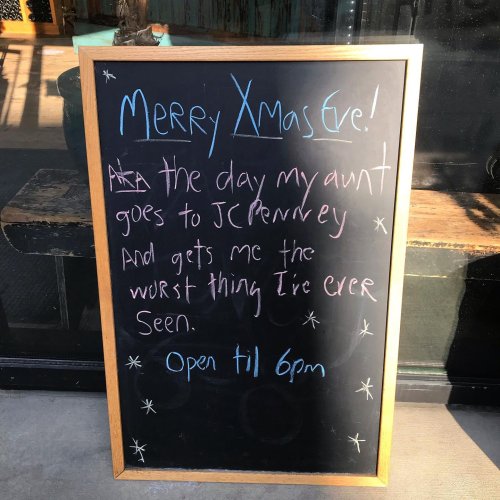 Merry Xmas Eve!
AKA the day my aunt
goes to JCPenney
And gets me the
worst thing I've ever
Seen.
Open til 6pm